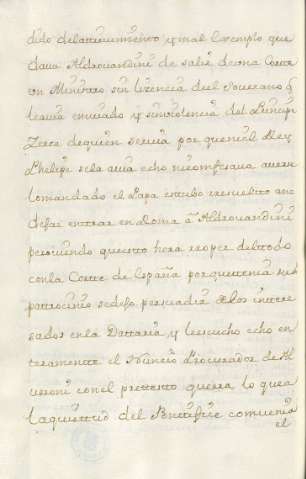 dido delatrevimiento y mal Exemplo que
dava Aldrovandini de salir deuna Corte
un Ministro sin licencia del Soverano q̃
le avia enviado y sin noticia del Principe
cerca dequien servia por quenial Rey
Phelipe sela avia echo niconfesava averse
lo mandado el Papa estubo resuelto ano
dejar entrar en Roma a Aldrovandini
pero viendo que esto hera romper deltodo
conla Corte de España porquetenia sus
patrocinios sedejo persuadir delos intere
sados enla Dattaria, y le escucho echo en
teramente el Nuncio Procurador de Al
veroni con el pretexto quera lo que a
la quietud del Pontifice convenia
el